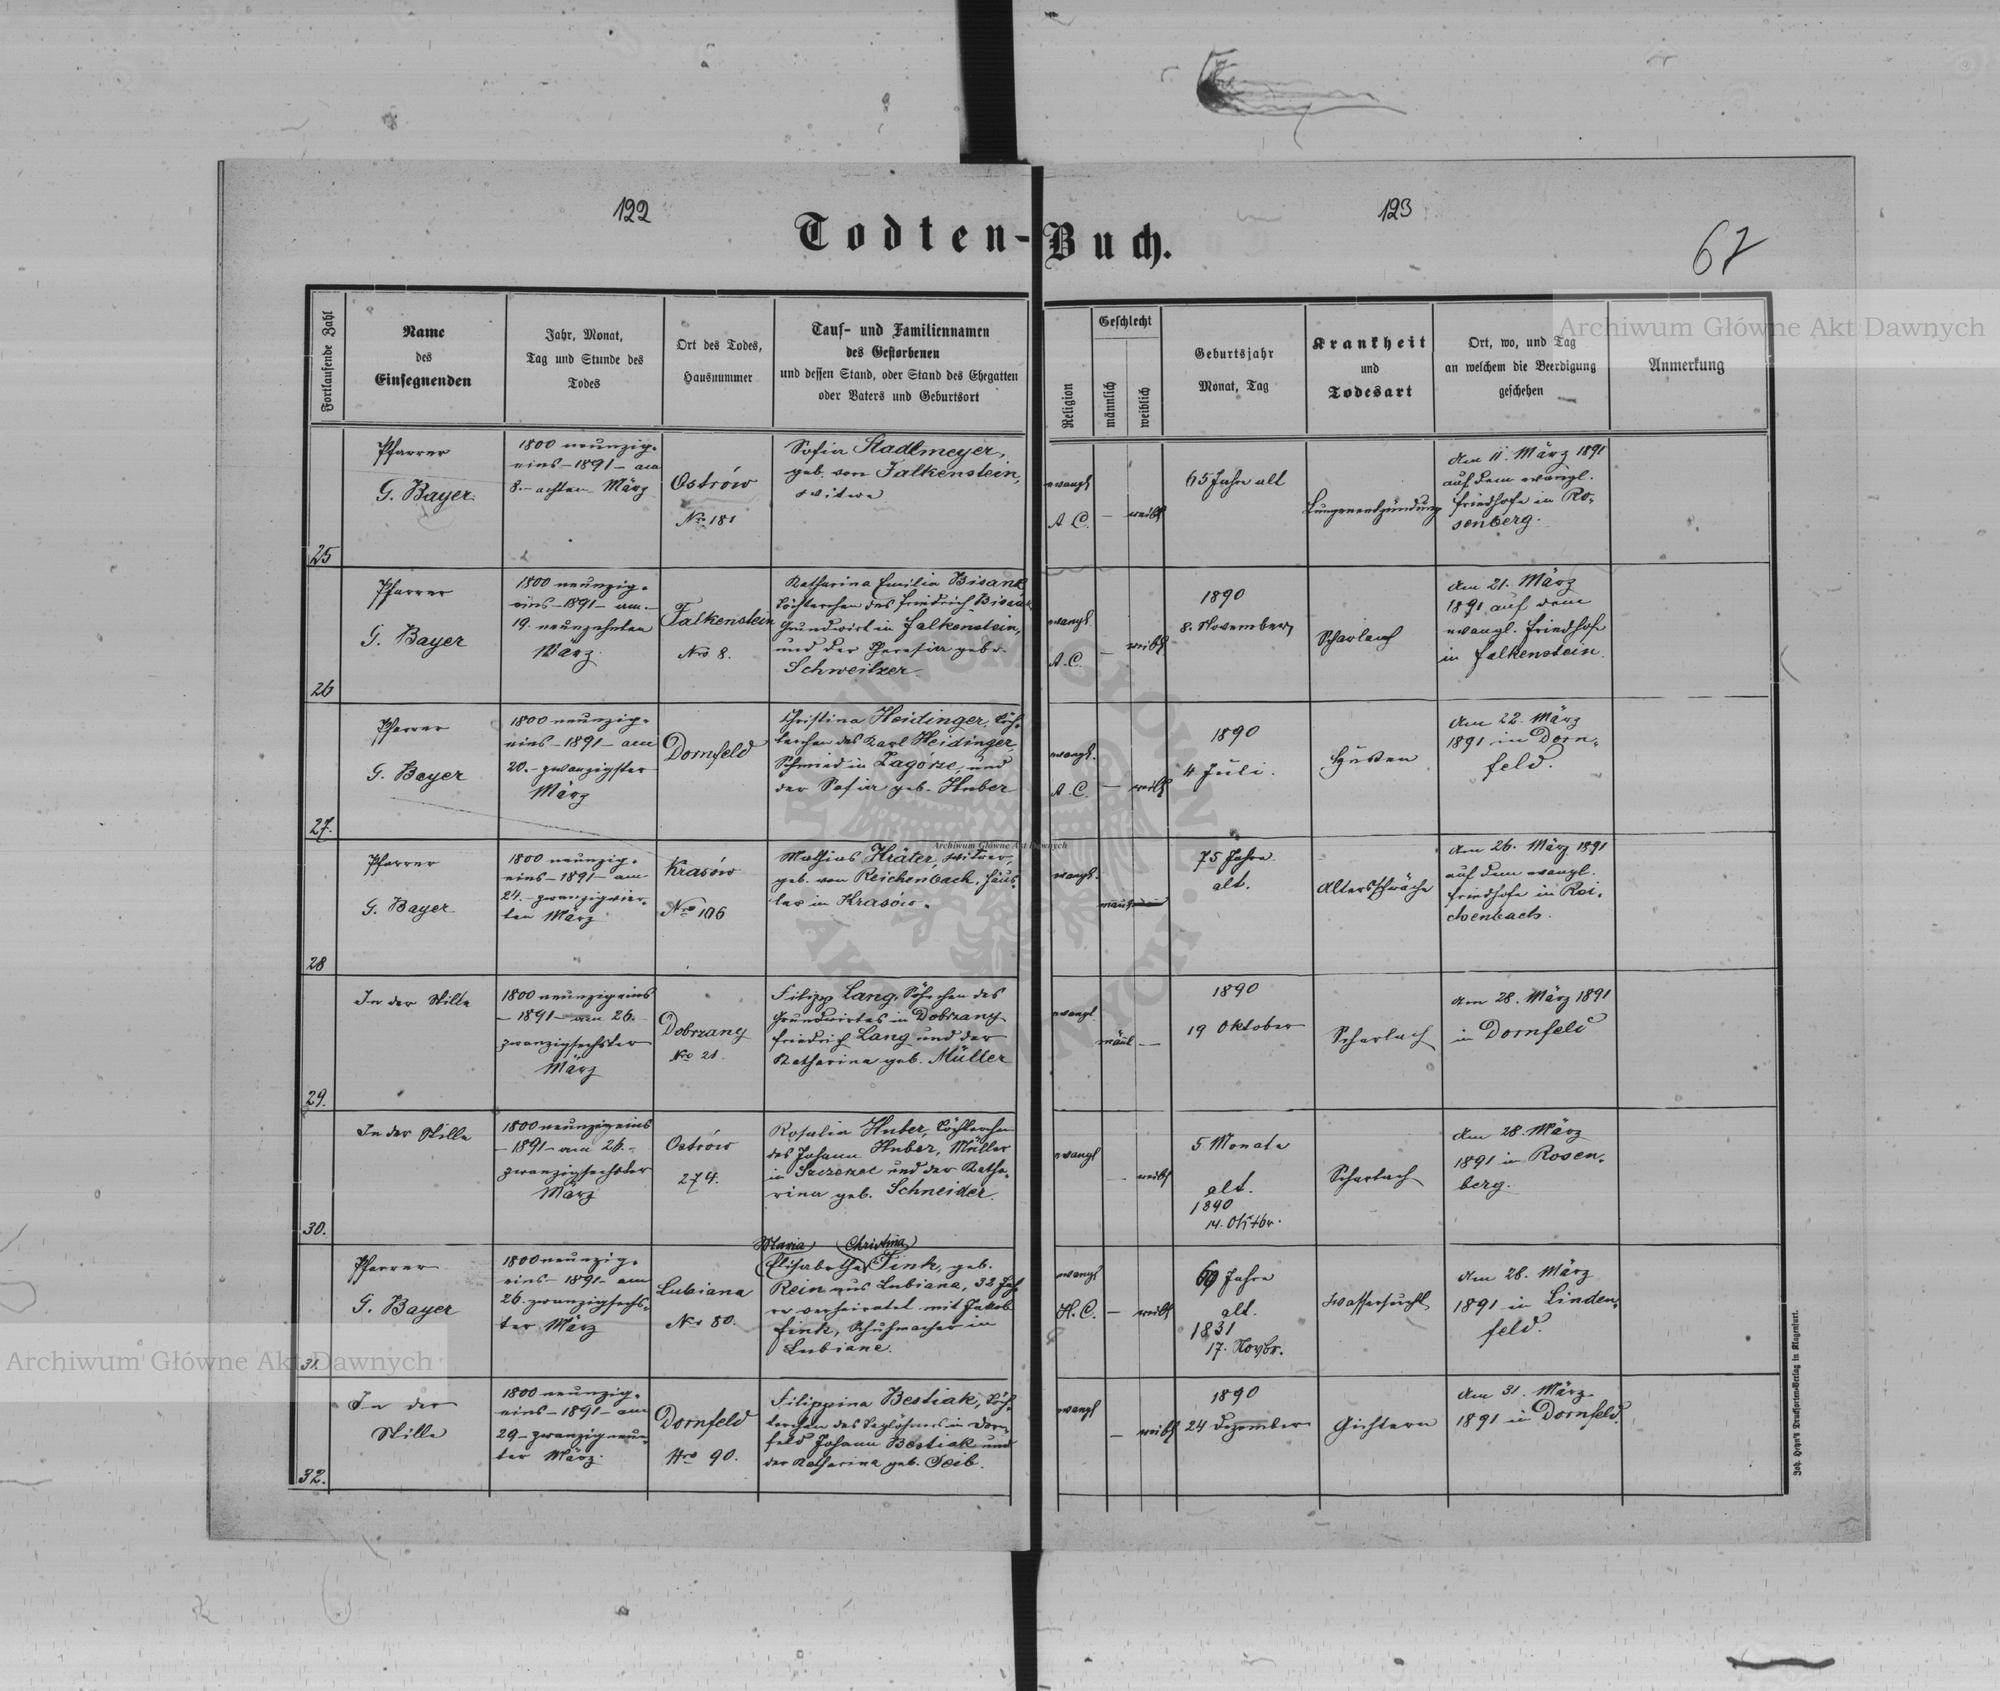 122
123
67
Todten-Buch.
Fortlaufende Zahl
Name
des
Einsegnenden
Jahr, Monat,
Tag und Stunde des
Todes
Ort des Todes,
Hausnummer
Tauf- und Familiennamen
des Gestorbenen
und dessen Stand, oder Stand des Ehegatten
oder Vaters und Geburtsort
Religion
Geschlecht
männlich
weiblich
Geburtsjahr
Monat, Tag
Krankheit
und
Todesart
Ort, wo, und Tag
an welchem die Beerdigung
geschehen
Anmerkung
25
Pfarrer
G. Bayer
1800 neunzig-
eins - 1891 - am
8. - achten März
Ostrów
Nro 181
Sofia Stadlmeyer,
geb. von Falkenstein,
Witwe
evangl
A. C.
—
weibl
65 Jahre alt
Lungenentzündung
Am 11. März 1891
auf dem evangl.
Friedhofe in Ro-
senberg.
26
Pfarrer
G. Bayer
1800 neunzig-
eins - 1891 - am
19. neunzehnten
März
Falkenstein
Nro 8.
Katharina Emilia Bisanz
Töchterchen des Friedrich Bisanz
Grundwirt in Falkenstein,
und der Theresia geb.
Schweitzer
evangl
A. C.
—
weibl
1890
8. November
Scharlach
Am 21. März
1891 auf dem
evangl. Friedhofe
in Falkenstein.
27.
Pfarrer
G. Bayer
1800 neunzig-
eins - 1891 - am
20. - zwanzigster
März
Dornfeld
Christina Heidinger, Töch-
terchen des Karl Heidinger,
Schmied in Zagórze, und
der Sofia geb. Huber
evangl.
A. C.
—
weibl
1890
4 Juli.
Husten
Am 22. März
1891 in Dorn-
feld.
28
Pfarrer
G. Bayer
1800 neunzig-
eins - 1891 - am
24. - zwanzigvier-
ten März
Krasów
Nro 106
Mathias Kräter, Witwer,
geb. von Reichenbach, Häus-
ler in Krasów.
evangl.
männl
75 Jahre
alt.
Altersschwäche
Am 26. März 1891
auf dem evangl.
Friedhofe in Rei-
chenbach.
29.
In der Stille
1800 neunzigeins
- 1891 - am 26.
zwanzigsechster
März
Dobrzany
Nro 21.
Filipp Lang, Söhnchen des
Grundwirtes in Dobrzany
Friedrich Lang und der
Katharina geb. Müller
evangl
männl
—
1890
19 Oktober
Scharlach
Am 28. März 1891
in Dornfeld
30.
In der Stille
1800 neunzigeins
- 1891 - am 26. -
zwanzigsechster
März
Ostrów
274.
Rosalia Huber, Töchterchen
des Johann Huber, Müller
in Szczerzec und der Katha-
rina geb. Schneider.
evangl
—
weibl
5 Monate
alt.
1890
14. Oktbr.
Scharlach
Am 28. März
1891 in Rosen-
berg.
31.
Pfarrer
G. Bayer
1800 neunzig-
eins - 1891 - am
26. zwanzigsechs-
ter März
Lubiana
Nro 80.
Maria Christina
(Elisabetha) Fink, geb.
Rein aus Lubiana, 32 Jah-
re verheiratet mit Jakob
Fink, Schuhmacher in
Lubiana.
evangl
H. C.
—
weibl
60 Jahre
alt.
1831
17. Novbr.
Wassersucht
Am 28. März
1891 in Linden-
feld.
32.
In der
Stille
1800 neunzig-
eins - 1891 - am
29 - zwanzigneun-
ter März.
Dornfeld
Nro 90.
Filippina Bestiak, Töch-
terchen des Taglöhners in Dorn-
feld Johann Bestiak und
der Katharina geb. Seib.
evangl
—
weibl
1890
24 Dezember
Gichtern
Am 31. März
1891 in Dornfeld.
Joh. Heyn's Drucksorten-Verlag in Klagenfurt.
Archiwum Główne Akt Dawnych
Archiwum Główne Akt Dawnych
Archiwum Główne Akt Dawnych